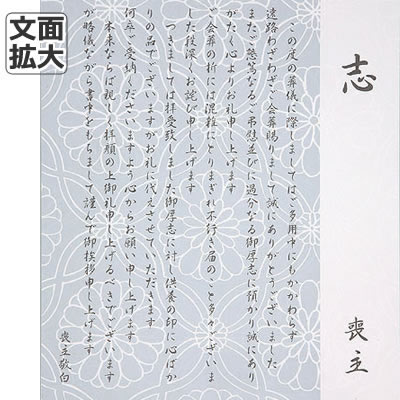 文面
拡大
志
喪主
この度の葬儀に際しましてはご多用中にもかかわらず
遠路わざわざご会葬賜りまして誠にありがとうございました
またご懇篤なるご弔慰並びに過分なる御厚志に預かり誠にあり
がたく心よりお礼申し上げます
ご会葬の折には混雑にとりまぎれ不行き届のこと多々ございま
した段深くお詫び申し上げます
つきましては拝受致しました御厚志に対し供養の印に心ばか
りの品でございますがお礼に代えさせていただきます
何卒ご受納くださいますよう心からお願い申し上げます
本来ならば親しく拝顔の上御礼申し上げるべきでございます
が略儀ながら書中をもちまして謹んで御挨拶申し上げます
喪主敬白